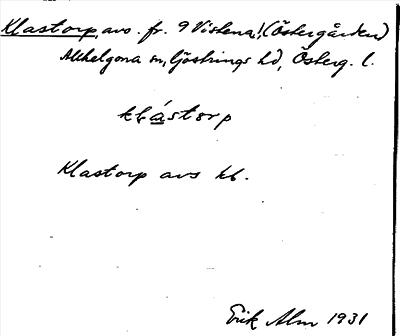 Klastorp, avs. fr. 9 Vistena, (Östergården)
Allhelgona sn, Göstrings hd, Österg. l.
klástorp
Klastorp avs kb.
Erik Alm 1931